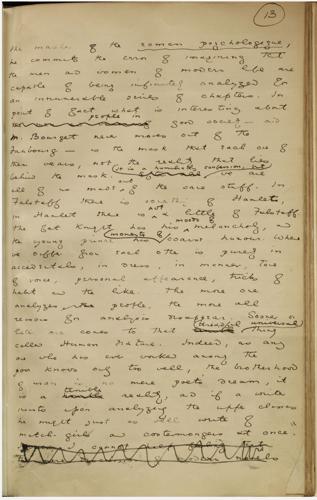 13
the master of the roman psychologique,
he commits the error of imagining that
the men and women of modern life are
capable of being infinitely analysed for
an innumerable series of chapters. In
point of fact what is interesting about
people in good society — and
M. Bourget never moves out of the
Faubourg — is the mask that each one of
them wears, not the reality that lies
behind the mask. It is a humiliating confession, but we are
all of us made out of the same stuff. In
Falstaff there is something of Hamlet,
in Hamlet there is not a little of Falstaff.
The fat Knight has his moods of melancholy, and
the young prince his moments of coarse humour. Where
we differ from each other is purely in
accidentals, in dress, in manner, tone
of voice, personal appearance, tricks of
habit and the like. The more one
analyses people, the more all
reasons for analysis disappear. Sooner or
later one comes to that dreadful universal thing
called Human Nature. Indeed, as any
one who has ever worked among the
poor knows only too well, the brotherhood
of man is no mere poet's dream, it
is a terrible reality, and if a writer
insists upon analysing the upper classes
he might just as well write of
match-girls and costermongers at once.